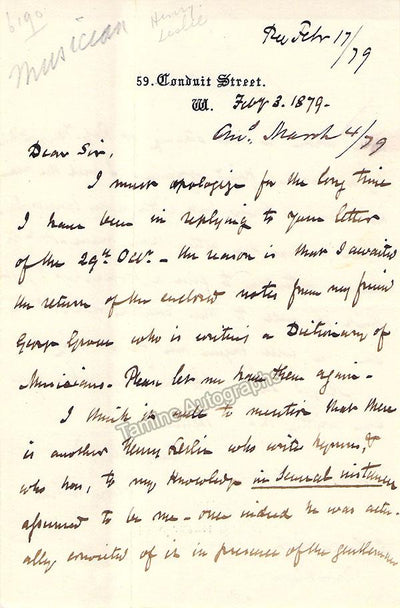 6190
Musician
Henry
Leslie
Rec Febr 17/79
59. Conduit Street.
W. Feby 3. 1879.
Ansd March 4/79
Dear Sir,
I must apologize for the long time
I have been in replying to your letter
of the 29th Octr. - the reason is that I awaited
the return of the enclosed notes from my friend
George Grove who is writing a Dictionary of
Musicians. Please let me have them again -
I think it well to mention that there
is another Henry Leslie who writes hymns, &
who has, to my knowledge in several instances
assumed to be me - once indeed he was actu-
ally convicted of it in presence of the gentleman
Tamino Autographs